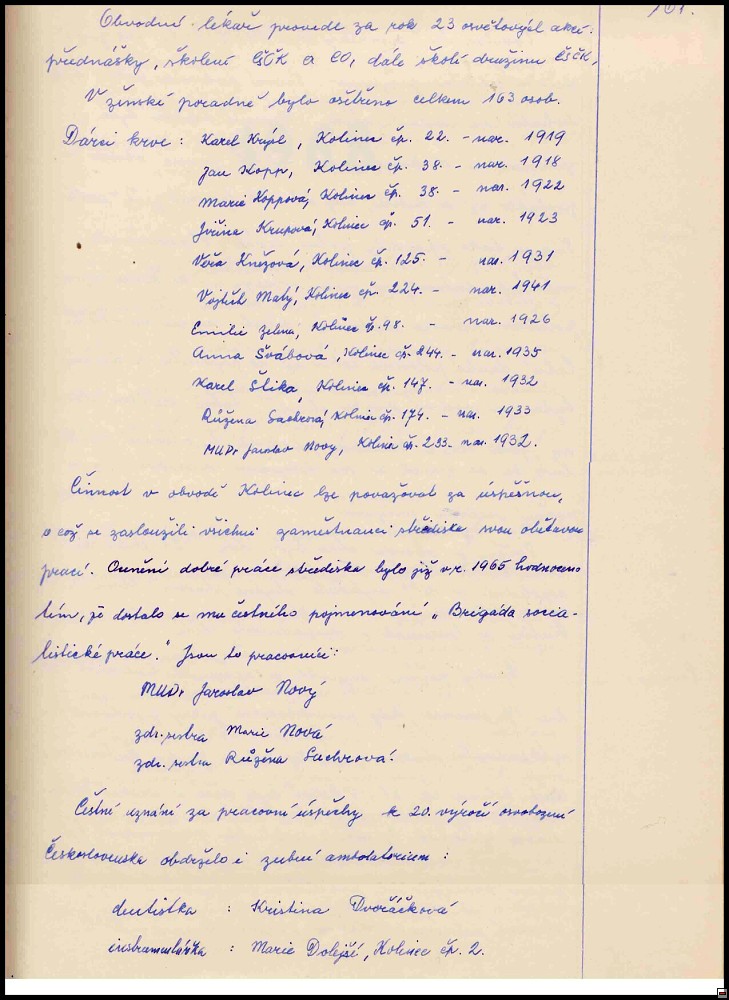 101.
Obvodní lékař provede za rok 23 osvětových akcí:
přednášky, školení ČSČK a CO, dále školí družinu ČSČK.
V ženské poradně bylo ošetřeno celkem 163 osob.
Dárci krve : Karel Krýsl, Kolinec čp. 22. - nar. 1919
Jan Kopp, Kolinec čp. 38. - nar. 1918
Marie Koppová, Kolinec čp. 38. - nar. 1922
Jiřina Krupová, Kolinec čp. 51. - nar. 1923
Věra Kněžová, Kolinec čp. 125. - nar. 1931
Vojtěch Matý, Kolinec čp. 224. - nar. 1941
Emilie Zelená, Kolinec čp. 98. - nar. 1926
Anna Švábová, Kolinec čp. 244. - nar. 1935
Karel Šlika, Kolinec čp. 147. - nar. 1932
Růžena Sachrová, Kolinec čp. 174. - nar. 1933
MUDr Jaroslav Nový, Kolinec čp. 233. nar. 1932.
Činnost v obvodě Kolinec lze považovat za úspěšnou,
o což se zasloužili všichni zaměstnanci střediska svou obětavou
prací. Ocenění dobré práce střediska bylo již v r. 1965 hodnoceno
tím, že dostalo se mu čestného pojmenování „Brigáda socia-
listické práce." Jsou to pracovníci:
MUDr Jaroslav Nový
zdr. sestra Marie Nová
zdr. sestra Růžena Sachrová.
Čestné uznání za pracovní úspěchy k 20. výročí osvobození
Československa obdrželo i zubní ambulatorium :
dentistka : Kristina Dvořáčková
instrumentářka : Marie Dolejší, Kolinec čp. 2.